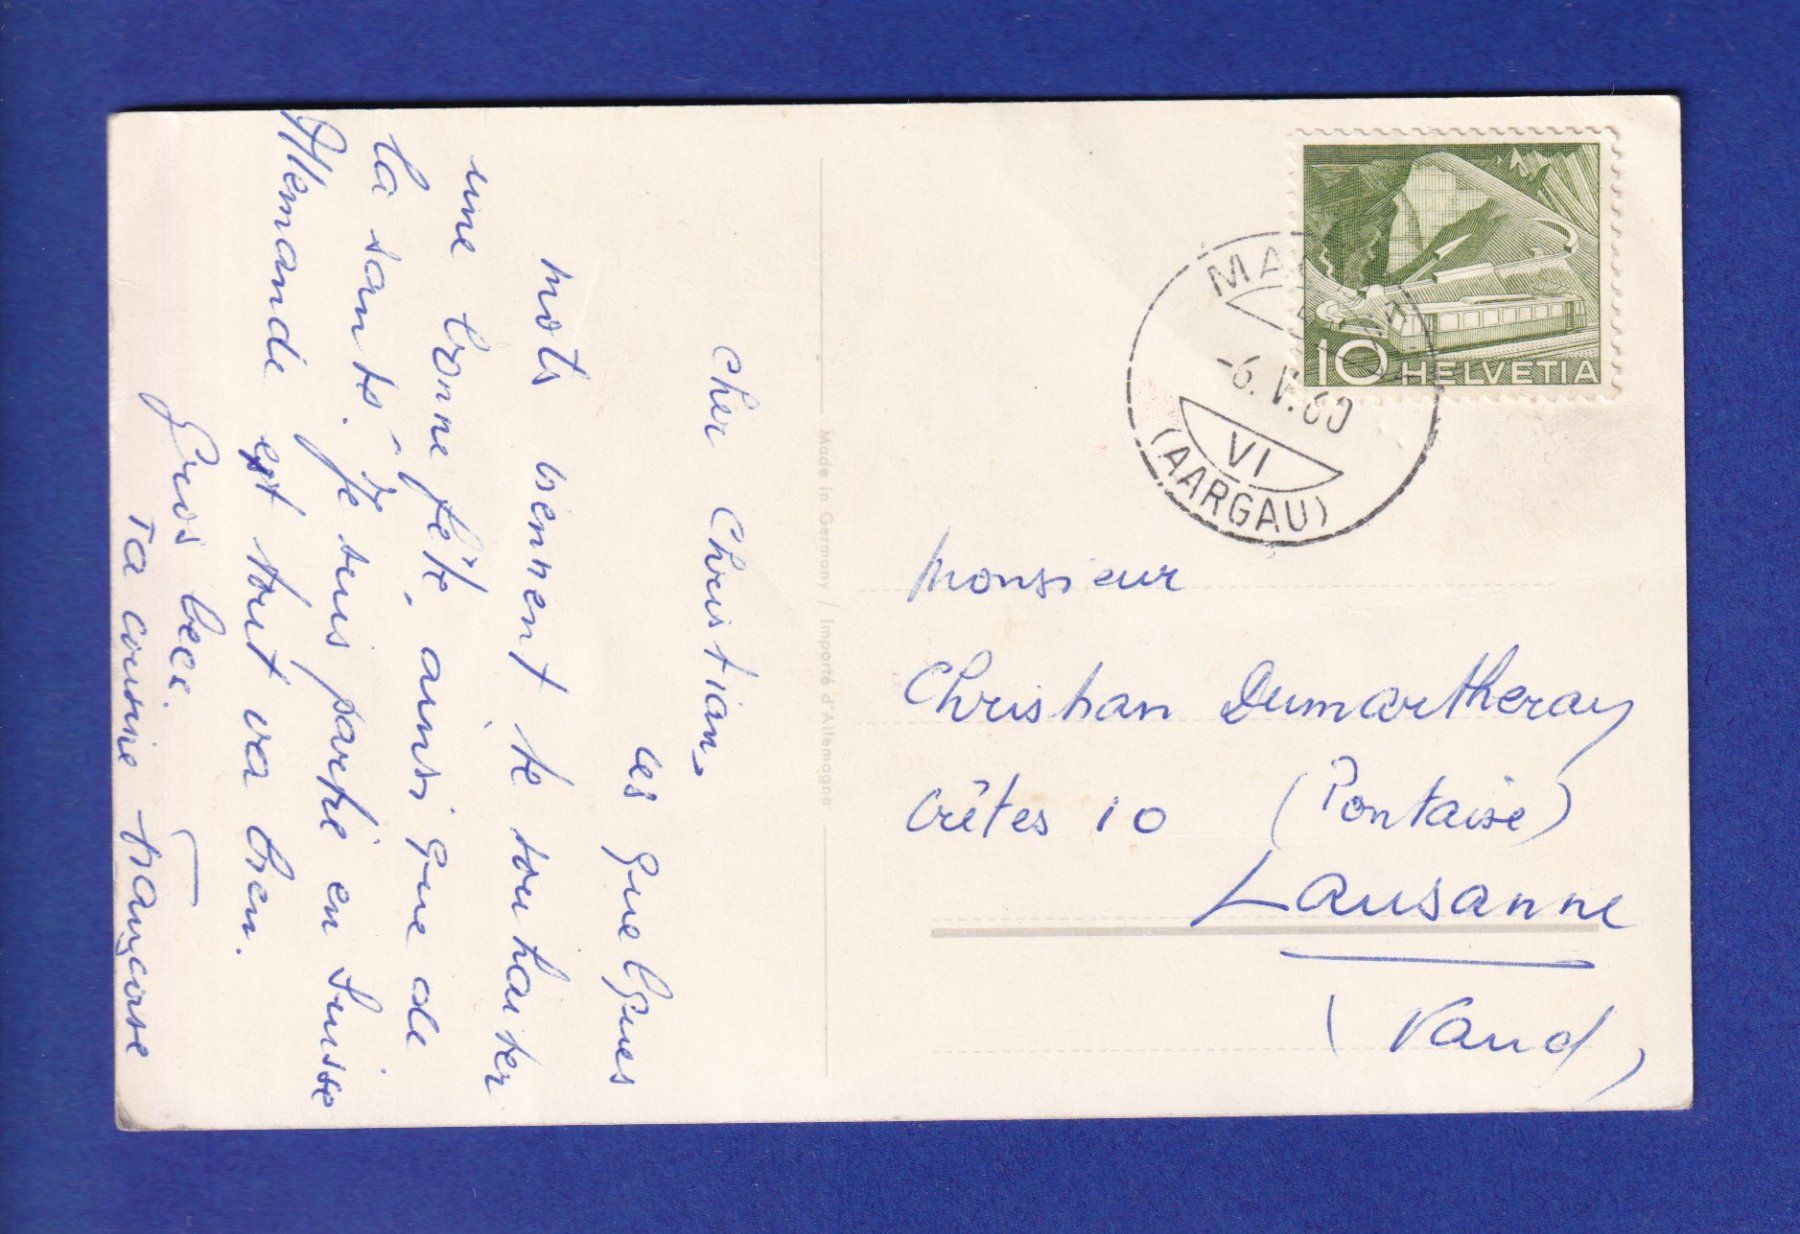 Cher Christian,
ces quelques
mots viennent te souhaiter
une bonne fête, ainsi que de
la santé. Je suis partie en Suisse
Allemande est tout va bien.
Gros becs.
Ta cousine Françoise
Made in Germany / Importé d'Allemagne
10 HELVETIA
-6. V. 60
VI
(AARGAU)
Monsieur
Christian Dumartheray
Crêtes 10 (Pontaise)
Lausanne
(Vaud)